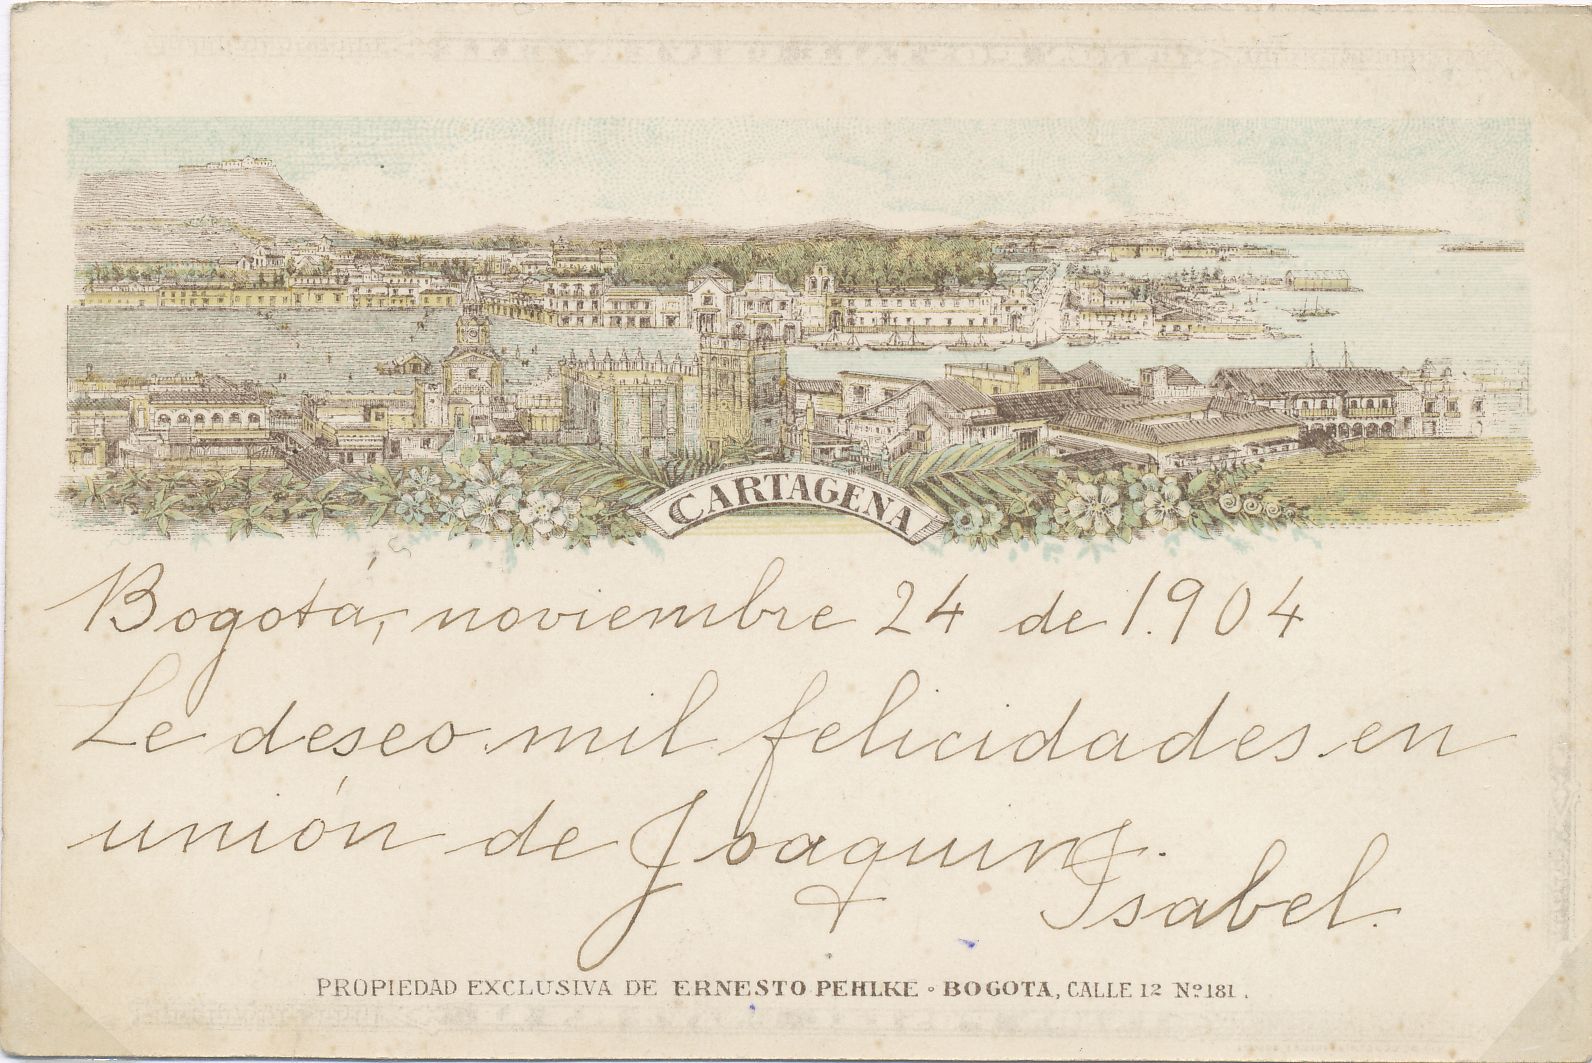 CARTAGENA
Bogotá, noviembre 24 de 1.904
Le deseo mil felicidades en
unión de Joaquin.
Isabel.
PROPIEDAD EXCLUSIVA DE ERNESTO PEHLKE - BOGOTA, CALLE 12 Nº 181.